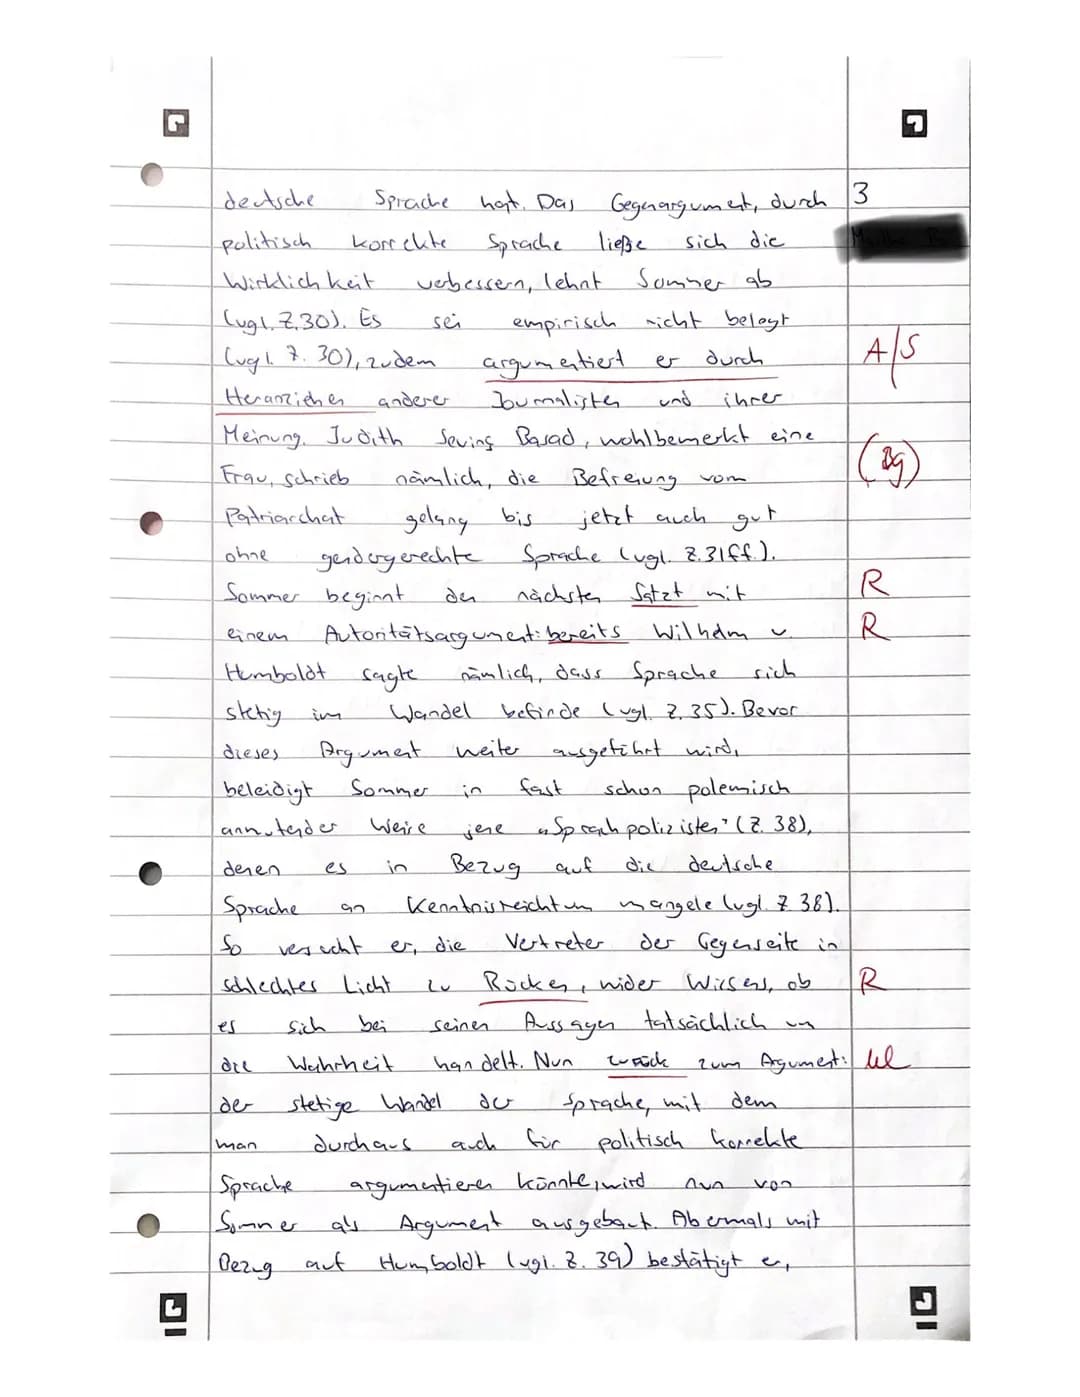 deutsche Sprache hat. Das Gegenargument, durch 3
politisch korrekte Sprache ließe sich die
Wirklichkeit verbessern, lehnt Sommer ab
(vgl. Z.30). Es sei empirisch nicht belegt
(vgl. Z. 30), zudem argumentiert er durch A/S
Heranziehen anderer Journalisten und ihrer
Meinung. Judith Sevinç Basad, wohlbemerkt eine
Frau, schrieb nämlich, die Befreiung vom (Bg)
Patriarchat gelang bis jetzt auch gut
ohne gendergerechte Sprache (vgl. Z.31ff.).
Sommer beginnt den nächsten Satzt mit R
einem Autoritätsargument: bereits Wilhelm v. R
Humboldt sagte nämlich, dass Sprache sich
stetig im Wandel befinde (vgl. Z.35). Bevor
dieses Argument weiter ausgeführt wird,
beleidigt Sommer in fast schon polemisch
anmutender Weise jene „Sprachpolizisten" (Z. 38),
denen es in Bezug auf die deutsche
Sprache an Kenntnisreichtum mangele (vgl. Z 38).
So versucht er, die Vertreter der Gegenseite in
schlechtes Licht zu Rücken, wider Wissens, ob R
es sich bei seinen Aussagen tatsächlich um
die Wahrheit handelt. Nun zurück zum Agument:
der stetige Wandel der Sprache, mit dem
man durchaus auch für politisch korrekte
Sprache argumentieren könnte, wird nun von
Sommer als Argument ausgebaut. Abermals mit
Bezug auf Humboldt (vgl. Z. 39) bestätigt er,